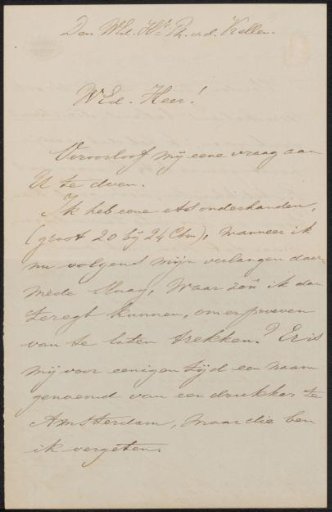 Den Wed. Hr. Ph. v.d. Kellen.
WEd. Heer!
Veroorloof mij eene vraag aan
U te doen.
Ik heb eene ets onderhanden,
(groot 20 bij 24 Ctm), wanneer ik
nu volgend mijn verlangen daar
mede slaag, waar zoû ik dan
teregt kunnen, om er proeven
van te laten trekken? Er is
mij voor eenigen tijd een naam
genoemd van een drukker te
Amsterdam, maar die ben
ik vergeten.